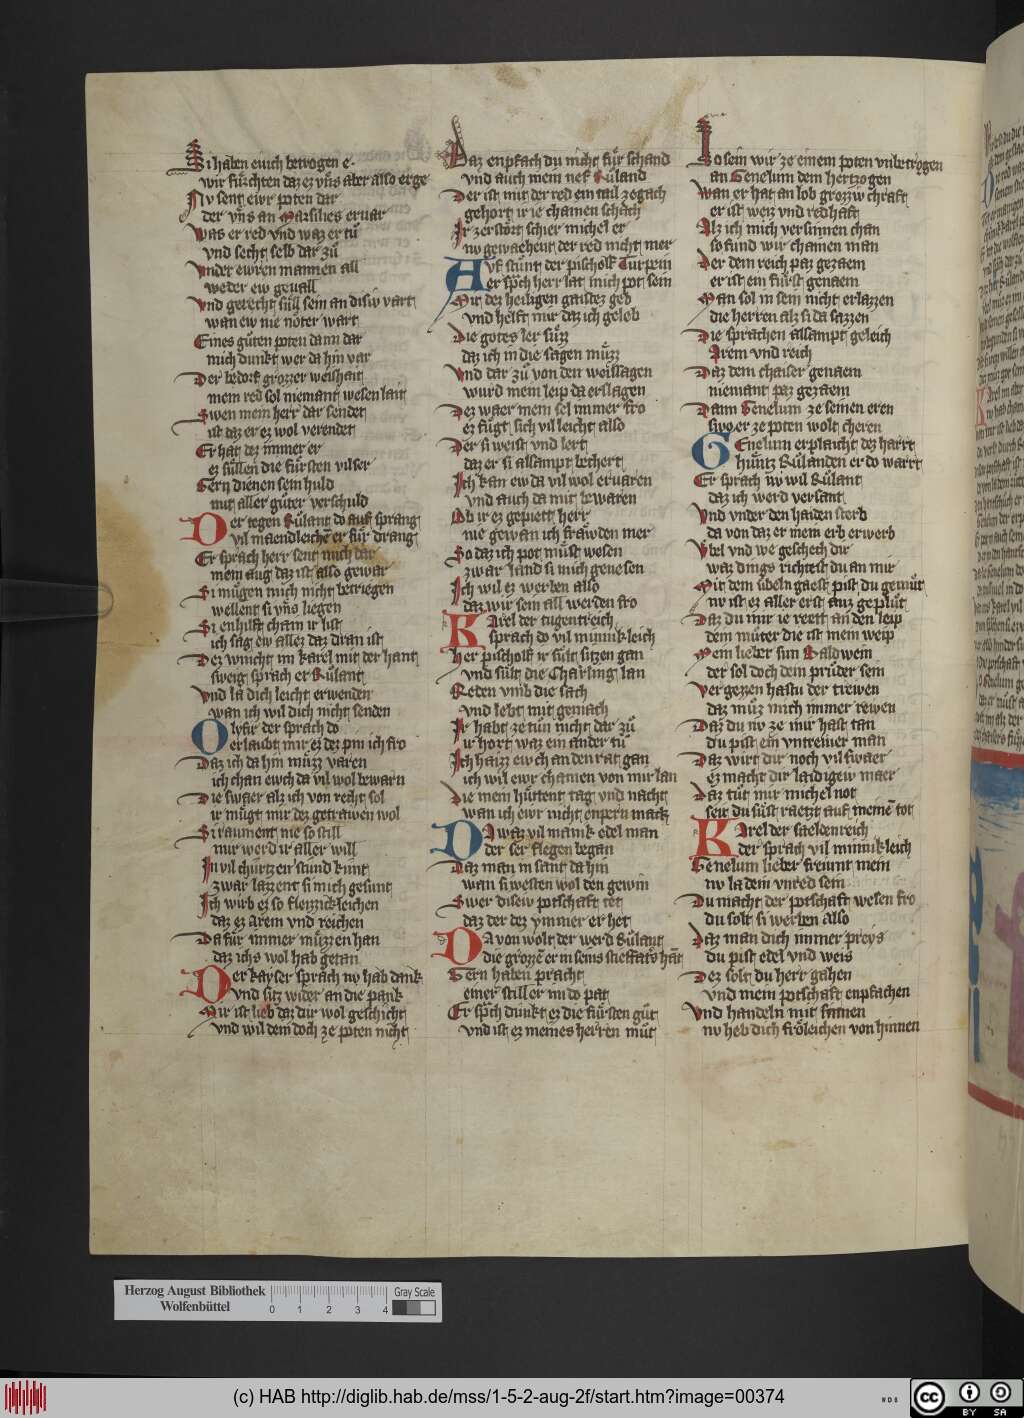 Si haben euch betrogen e
wir fürchten daz ez vns aber also erge
Nv sent ewr poten dar
der vns an Marsilies ervar
Was er red vnd waz er tů
vnd secht selb dar zů
Vnder ewren mannen all
weder ew geuall
Vnd gerecht süll sein an disiv vart
wan ew nie noter wart
Eines gůten poten dann dar
mich dunkt wer da hin var
Der bedorf grozzer weishait
mein red sol niemant wesen lait
Swen mein herr dar sendet
ist daz er ez wol verendet
Er hat dez immer er
ez süllen die fürsten vil ser
Gern dienen sein huld
mit aller gůter verschuld
Der tegen Růlant do auf sprang
vil maendleichē er für drang
Er sprach herr sent mich dar
mein aug daz ist also gewar
Si mügen mich nicht betriegen
wellent si vns liegen
Si enhilft chain ir list
ich sag ew allez daz dran ist
Dez wincht im karel mit der hant
sweig sprach er Růlant
Vnd la dich leicht erwenden
wan ich wil dich nicht senden
Olyfir der sprach do
erlaubt mir ez dez pin ich fro
Daz ich da hin müzz varen
ich chan ewch da vil wol bewarn
Die swaer alz ich von recht sol
ir mügt mir dez getrawen wol
Si raument nie so still
mir werd ir aller will
In vil churtzer stund kunt
zwar lazzent si mich gesunt
Ich wirb ez so fleizzichleichen
daz ez arem vnd reichen
Da für immer müzzen han
daz ichs wol hab getan
Der kayser sprach nv hab dank
vnd sitz wider an die pank
Mir ist lieb daz dir wol geschicht
vnd wil dein doch ze poten nicht
Daz enpfach du nicht für schand
vnd auch mein nef Růland
Der ist mit der red ein tail ze gach
gehort ir ie chainen schach
Ir zerstört schier michel er
nv gewaehent der red nicht mer
Auf stůnt der pischolf Turpein
er sp̄ch herr lat mich pot sein
Mir dez heiligen gaistez geb
vnd helft mir daz ich geleb
Die gotes ler süzz
daz ich in die sagen müzz
Vnd dar zů von den weissagen
wurd mein leip da erslagen
Dez waer mein sel immer fro
ez fügt sich vil leicht also
Der si weist vnd lert
daz er si allsampt bechert
Ich kan ew da vil wol ervaren
vnd auch da mit bewaren
Ob ir ez gepiett herr
nie gewan ich frawden mer
So daz ich pot müst wesen
zwar land si mich genesen
Ich wil ez werben also
daz wir sein all werden fro
Karel der tugentreich
sprach do vil minnikleich
Her pischolf ir sült sitzen gan
vnd sült die Charling lan
Reden vmb die sach
vnd lebt mit gemach
Ir habt ze tůn nicht dar zů
ir hort waz ein ander tů
Ich haizz ewch an den rat gan
ich wil ewr chainen von mir lan
Die mein hůttent tag vnd nacht
wan ich ewr nicht enpern mack
Da waz vil manik edel man
der ser flegen began
Daz man in sant da hin
wan si westen wol den gewin
Swer disew potschaft tet
daz der dez ymmer er het
Da von wolt der werd Růlant
die grozzē er in seins stieffat̄s hāt
Gern haben pracht
einer still er im do pat
Er sp̄ch dunkt ez die fürsten gůt
vnd ist ez meines herren můt
So sein wir ze einem poten vnbetrogen
an Genelum dem hertzogen
Wan er hat an lob grozziv chraft
er ist weiz vnd redhaft
Alz ich mich versinnen chan
so fund wir chainen man
Der dem reich paz gezaem
er ist ein fürst genaem
Man sol in sein nicht erlazzen
die herren alz si da sazzen
Die sprachen allsampt geleich
Arem vnd reich
Daz dem chaiser genaem
niemant paz gezaem
Dann Genelum ze seinen eren
swo er ze poten wolt cheren
Genelum erplaicht dez harrt
hintz Růlanden er do warrt
Er sprach nv wil Růlant
daz ich werd versant
Vnd vnder den haiden sterb
da von daz er mein erb erwerb
Vbel vnd we geschech dir
waz dings richtest du an mir
Mit dem übeln gaest pist du gemůt
nv ist ez aller erst auz geplůt
Daz du mir ie reett an den leip
dein můter die ist mein weip
Mein lieber sun Baldwein
der sol doch dein průder sein
Vergezzen hastu der trewen
daz můz mich immer rewen
Daz du nv ze mir hast tan
du pist ein vntrewer man
Daz wirt dir noch vil swaer
ez macht dir laidigew maer
Daz tůt mir michel not
seit du süst raetzt auf meinē tot
Karel der saeldenreich
der sprach vil minnikleich
Genelum lieber freunt mein
nv la dein vnred sein
Du macht der potschaft wesen fro
du solt si werben also
Daz man dich immer preys
du pist edel vnd weis
Dez solt du herr gahen
vnd mein potschaft enpfachen
Vnd handeln mit sinnen
nv heb dich fröleichen von hinnen
Herzog August Bibliothek
Wolfenbüttel
0 1 2 3 4
Gray Scale
(c) HAB http://diglib.hab.de/mss/1-5-2-aug-2f/start.htm?image=00374
WDB
cc BY SA